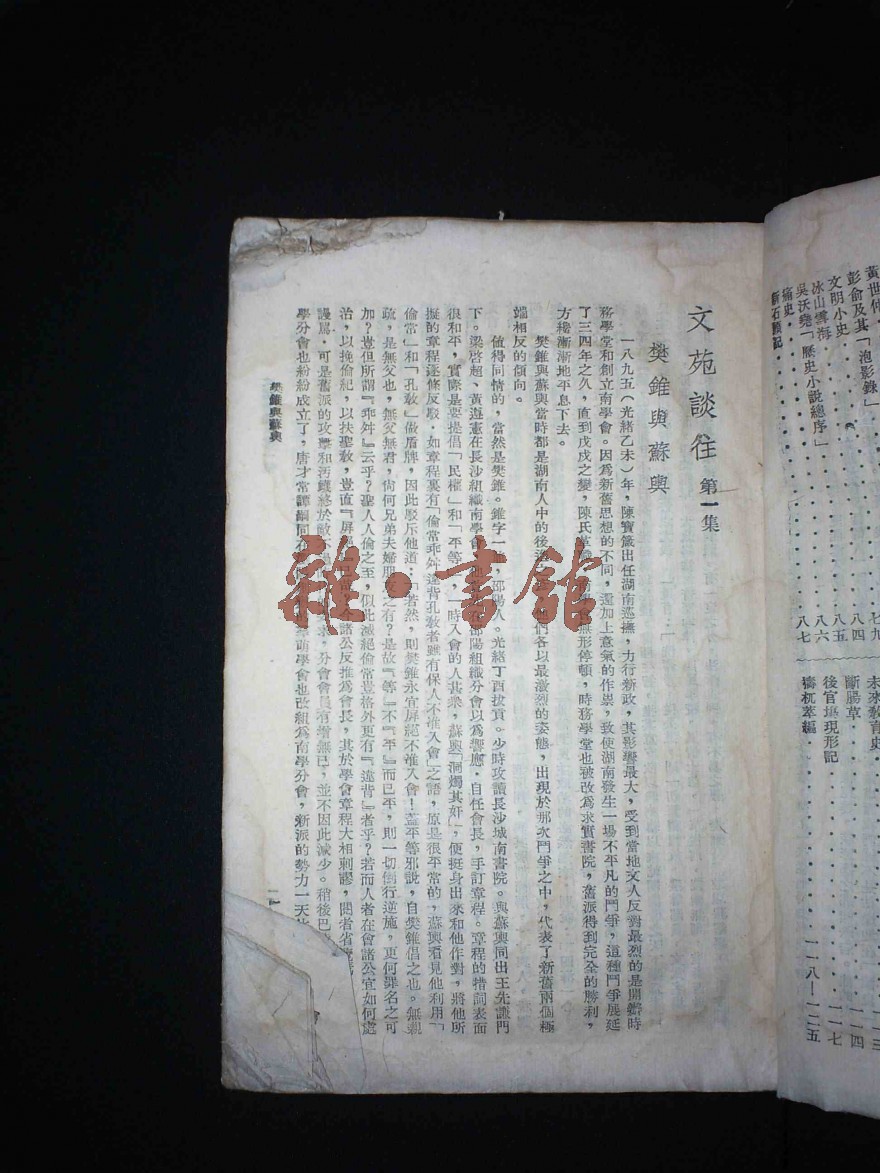 文苑談往 第一集
樊錐與蘇輿
一八九五（光緒乙未）年，陳寶箴出任湖南巡撫，力行新政，其影響最大，受到當地文人反對最烈的是開辦時
務學堂和創立南學會。因為新舊思想的不同，還加上意氣的作祟，致使湖南發生一場不平凡的鬥爭，這種鬥爭展延
了三四年之久，直到戊戌之變，陳氏革職，無形停頓，時務學堂也被改為求實書院，舊派得到完全的勝利，
方纔漸漸地平息下去。
樊錐與蘇輿當時都是湖南人中的後進，他們各以最激烈的姿態，出現於那次鬥爭之中，代表了新舊兩個極
端相反的傾向。
值得同情的，當然是樊錐。錐字一，邵陽人。光緒丁酉拔貢。少時攻讀長沙城南書院。與蘇輿同出王先謙門
下。梁啓超、黃遵憲在長沙組織南學會，邵陽組織分會以為響應。自任會長，手訂章程。章程的措詞表面
很和平，實際是要提倡「民權」和「平等」，一時入會的人甚衆，蘇輿「洞燭其奸」，便挺身出來和他作對，將他所
擬的章程逐條反駁。如章程裏有「倫常乖舛違背孔敎者雖有保人不准入會」之語，原是很平常的，蘇輿看見他利用「
倫常」和「孔敎」做盾牌，因此駁斥他道：「若然，則樊錐永宜屏絕不准入會！蓋平等邪說，自樊錐倡之也。無親
疏，是無父也，無父無君，尚何兄弟夫婦朋友之有？是故『等』不『平』而已平，則一切倒行逆施，更何罪名之可
加？豈但所謂『乖舛』云乎？聖人人倫之至，似此滅絕倫常豈格外更有『違背』者乎？若而人者在會諸公宜如何處
治，以挽倫紀，以扶聖敎，豈直『屏絕』諸公反推為會長，其於學會章程大相剌謬，閱者省
謾罵。可是舊派的攻擊和汚衊終於敵不過，分會會員有增無已，並不因此減少。稍後巴
學分會也紛紛成立了，唐才常譚嗣同在萌學會也改組為南學分會，新派的勢力一天
樊錐與蘇輿
一
黃世仲
彭俞及其「泡影錄」 七九
文明小史 八四
冰山雪海 八五
吳沃堯「歷史小說總序」 八六
痛史 八七
新石頭記
未來敎育史 一一三
斷腸草 一一四
後官場現形記 一一七
檮杌萃編 一一八—一二五
雜·書館